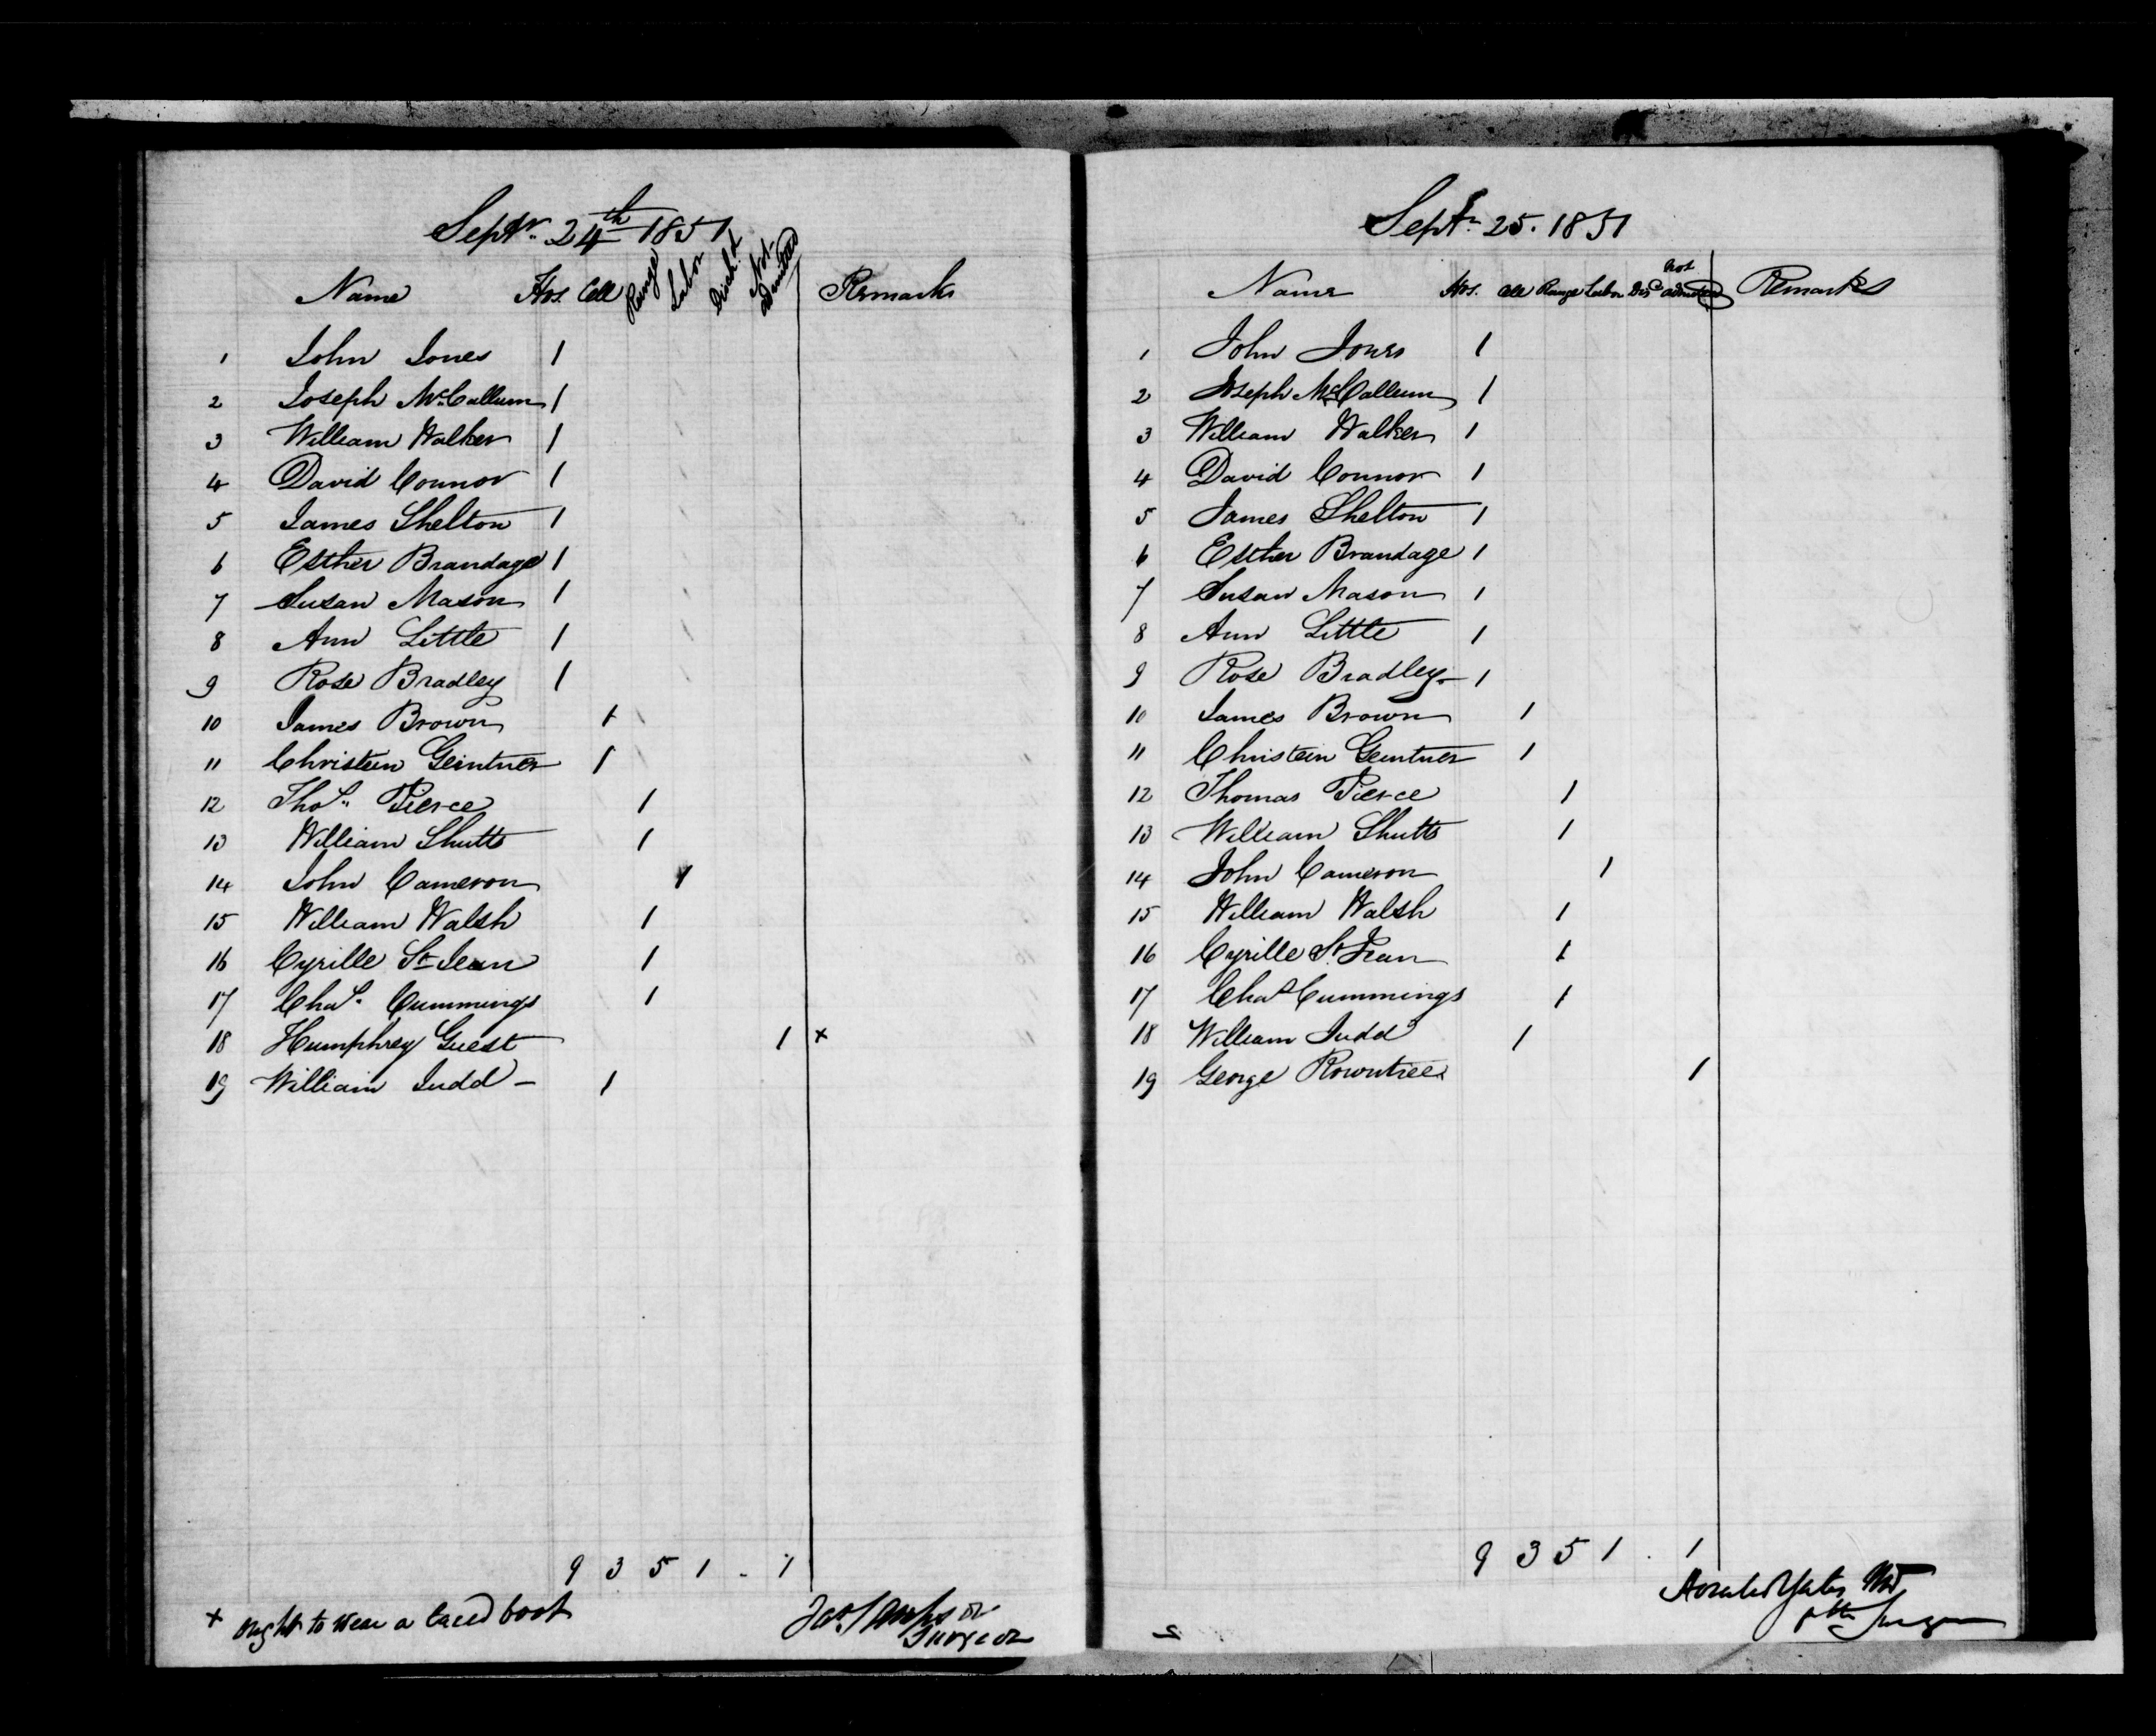 Septr. 24th 1851
Name Hos. Cell Range Labor Disch.d Not Admitted Remarks
1 John Jones 1
2 Joseph McCallum 1
3 William Walker 1
4 David Connor 1
5 James Shelton 1
6 Esther Brandage 1
7 Susan Mason 1
8 Ann Little 1
9 Rose Bradley 1
10 James Brown 1
11 Christien Geintner 1
12 Thos. Pierce 1
13 William Shutts 1
14 John Cameron 1
15 William Walsh 1
16 Cyrille St Jean 1
17 Chas. Cummings 1
18 Humphrey Guest 1 x
19 William Judd - 1
9 3 5 1 - 1
+ ought to wear a laced boot
Jas. Sampson
Surgeon
Septr. 25. 1851
Name Hos. Cell Range Labor Disc not admitted Remarks
1 John Jones 1
2 Joseph McCallum 1
3 William Walker 1
4 David Connor 1
5 James Shelton 1
6 Esther Brandage 1
7 Susan Mason 1
8 Ann Little 1
9 Rose Bradley - 1
10 James Brown 1
11 Christein Geintner 1
12 Thomas Pierce 1
13 William Shutts 1
14 John Cameron 1
15 William Walsh 1
16 Cyrille St Jean 1
17 Chas Cummings 1
18 William Judd 1
19 George Rowntree 1
9 3 5 1 . 1
Horatio Yates MD
Surgeon